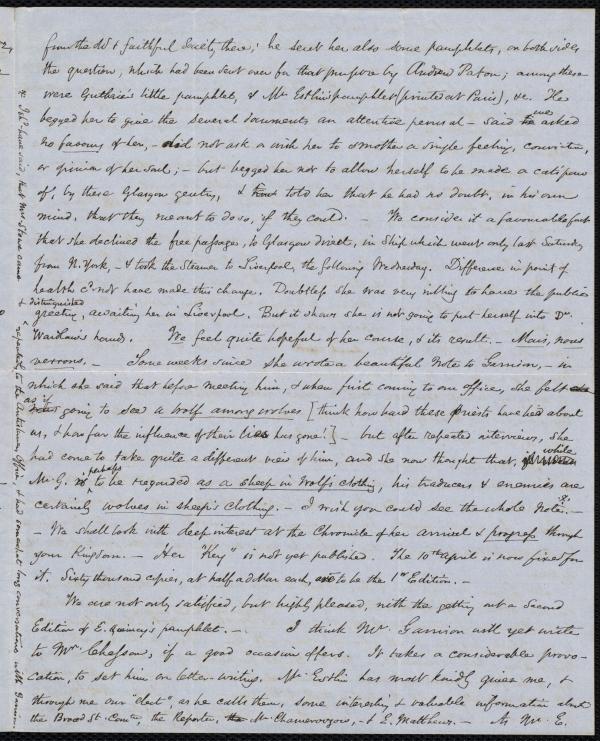 from the old & faithful Society there; he sent her also some pamphlets, on both sides
the question, which had been sent over for that purpose by Andrew Paton; among these
were Guthrie's little pamphlet, & Mr. Estlin's pamphlet (printed at Paris), &c. He
begged her to give the several documents an attentive perusal – said we asked
no favours of her, – did not ask or wish her to smother a single feeling, conviction,
or opinion of her soul; – but begged her not to allow herself to be made a catspaw
of, by these Glasgow gentry, & told her that he had no doubt, in his own
mind, that they meant to do so, if they could. – We consider it a favourable fact
that she declined the free passages, to Glasgow direct, in Ship which went only last Saturday
from N. York, – & took the Steamer to Liverpool, the following Wednesday. Difference in point of
health cd. not have made this change. Doubtless she was very willing to have the public
& distinguished
greeting, awaiting her in Liverpool. But it shows she is not going to put herself into Dr.
Wardlaw's hands. We feel quite hopeful of her course, & its result. – Mais, nous
verrons. – Some weeks since she wrote a beautiful Note to Garrison, – in
which she said that before meeting him, & when first coming to our office, she felt
as if going to see a wolf among wolves [think how hard these priests have lied about
us, & how far the influence of their lies has gone!] – but after repeated interviews, she
had come to take quite a different view of him, and she now thought that, while
Mr. G. perhaps to be regarded as a sheep in wolf's clothing, his traducers & enemies are
certainly wolves in sheep's clothing. – I wish you could see the whole Note. –
– We shall look with deep interest at the Chronicle of her arrival & progress through
your Kingdom. – Her "Key" is not yet published. The 10th April is now fixed for
it. Sixty thousand copies, at half a dollar each, are to be the 1st Edition. –
We are not only satisfied, but highly pleased, with the getting out a Second
Edition of E. Quincy's pamphlet. – I think Mr. Garrison will yet write
to Mr. Chesson, if a good occasion offers. It takes a considerable provo-
cation, to set him on letter-writing. Mr. Estlin has most kindly given me, &
through me our "elect", as he calls them, some interesting & valuable information about
the Broad St. Comee, the Reporter, Mr. Chamerovzow, & E. Matthews. – As Mr. E.
& I shd. have said, that Mrs. Stowe came
repeatedly to the Antislavery Office, & had somewhat long conversations with Garrison